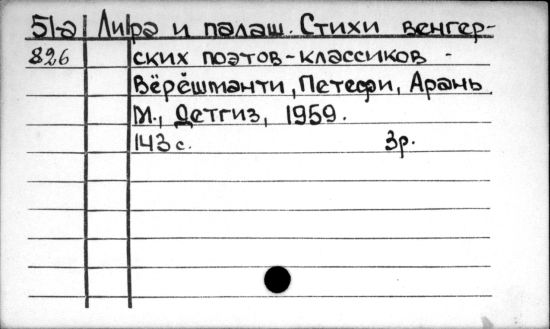 51-а Лира и палаш. Стихи венгер-
826 ских поэтов-классиков -
Вёрёшманти, Петефи, Арань.
М., Детгиз, 1959.
143 с. 3р.